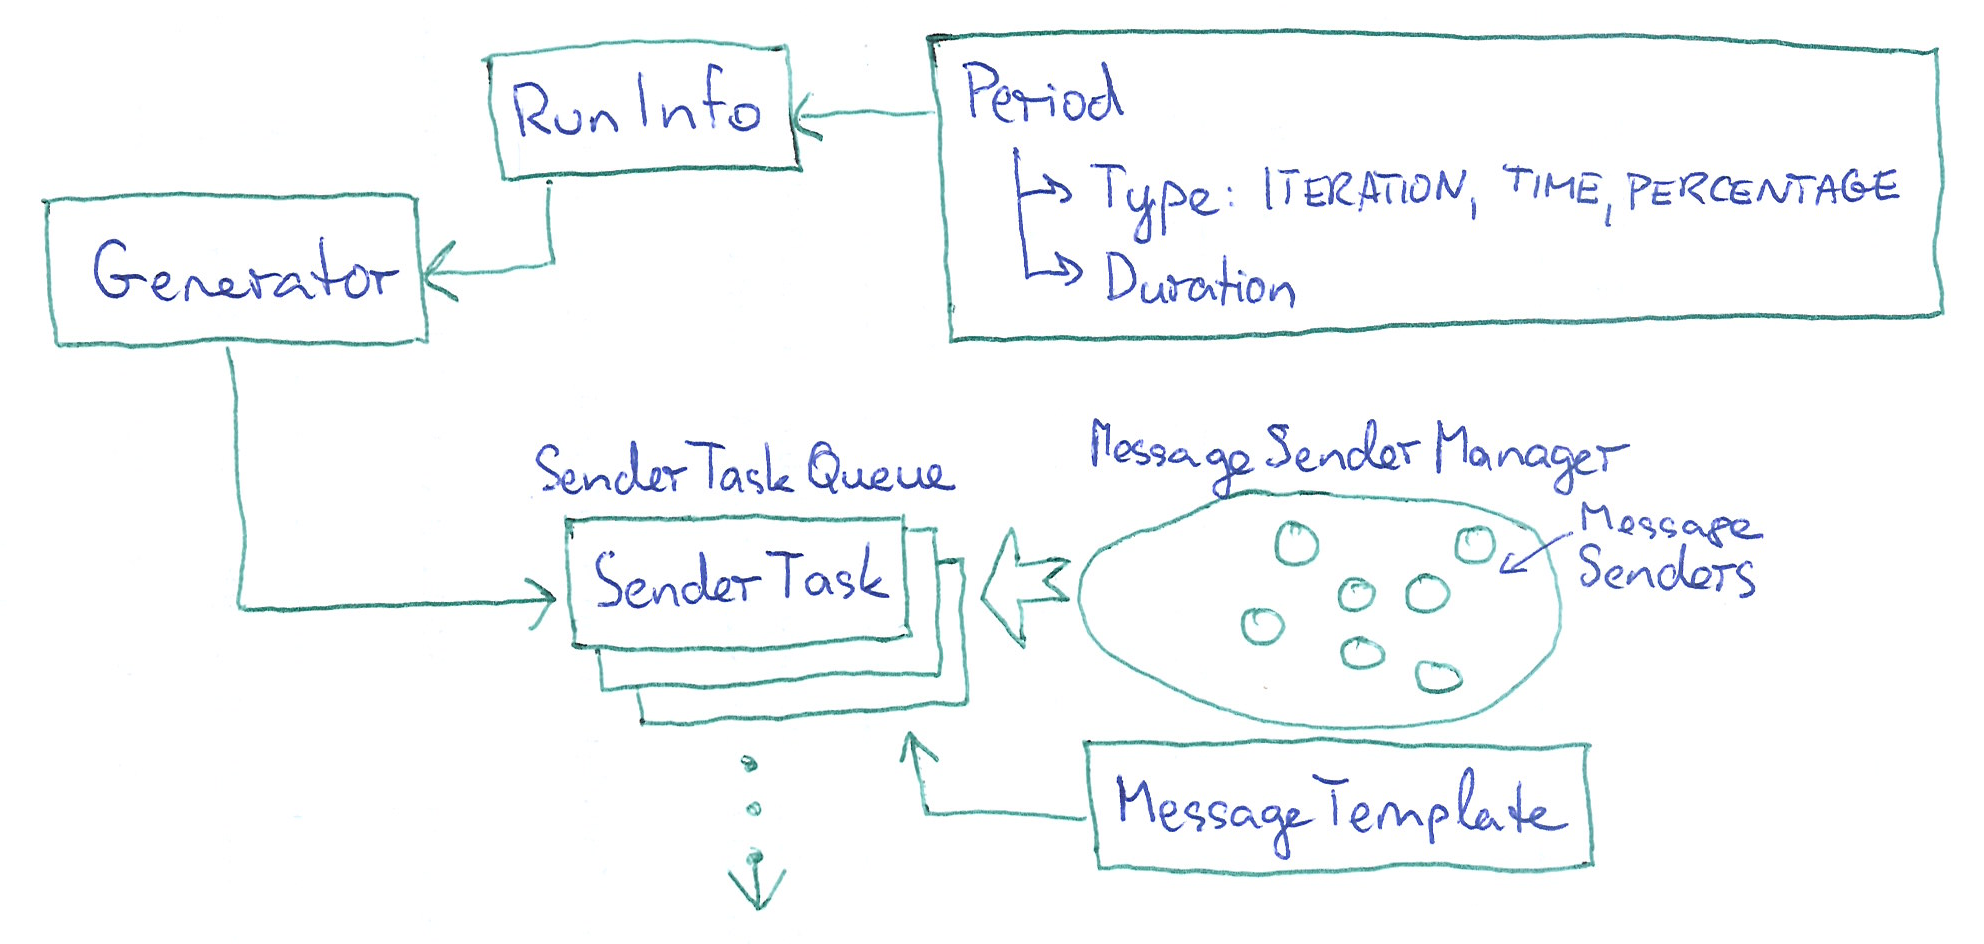 RunInfo
Period
Type: ITERATION, TIME, PERCENTAGE
Duration
Generator
SenderTaskQueue
SenderTask
MessageSenderManager
Message
Senders
MessageTemplate